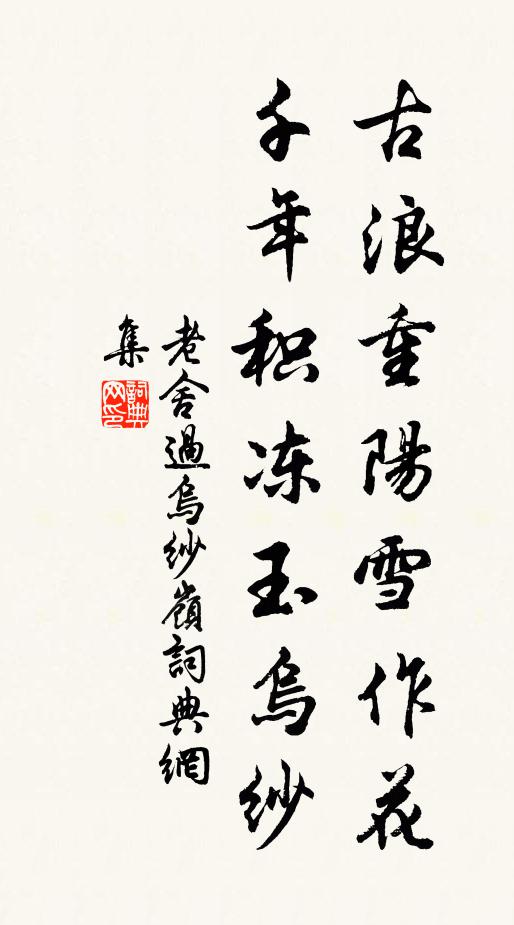 古浪重陽雪作花
千年积冻玉烏紗
老舍過烏紗嶺詞典網
集
詞典
网印